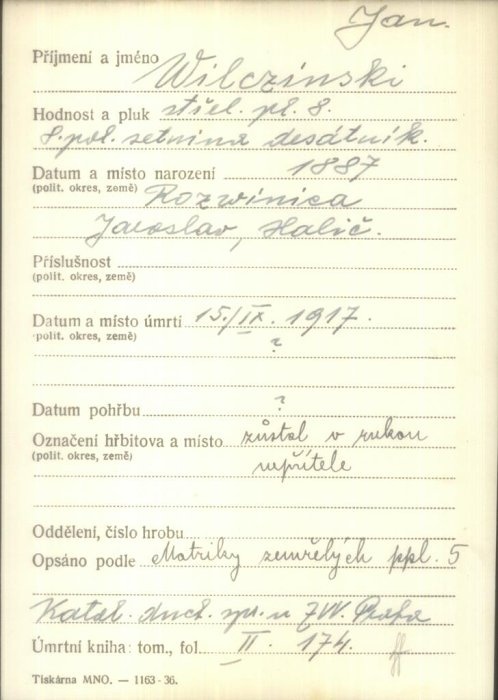 Jan.
Příjmení a jméno Wilczinski
Hodnost a pluk střel. pl. 8.
8. pol. setnina desátník.
Datum a místo narození 1887
(polit. okres, země) Rozwinica
Jaroslav, Halič.
Příslušnost
(polit. okres, země)
Datum a místo úmrtí 15./IX. 1917.
(polit. okres, země) ?
Datum pohřbu ?
Označení hřbitova a místo zůstal v rukou
(polit. okres, země) nepřítele
Oddělení, číslo hrobu
Opsáno podle Matriky zemřelých ppl. 5
Katol. duch. spr. u ZVV. Praha
Úmrtní kniha: tom., fol. II. 174.
Tiskárna MNO. — 1163-36.